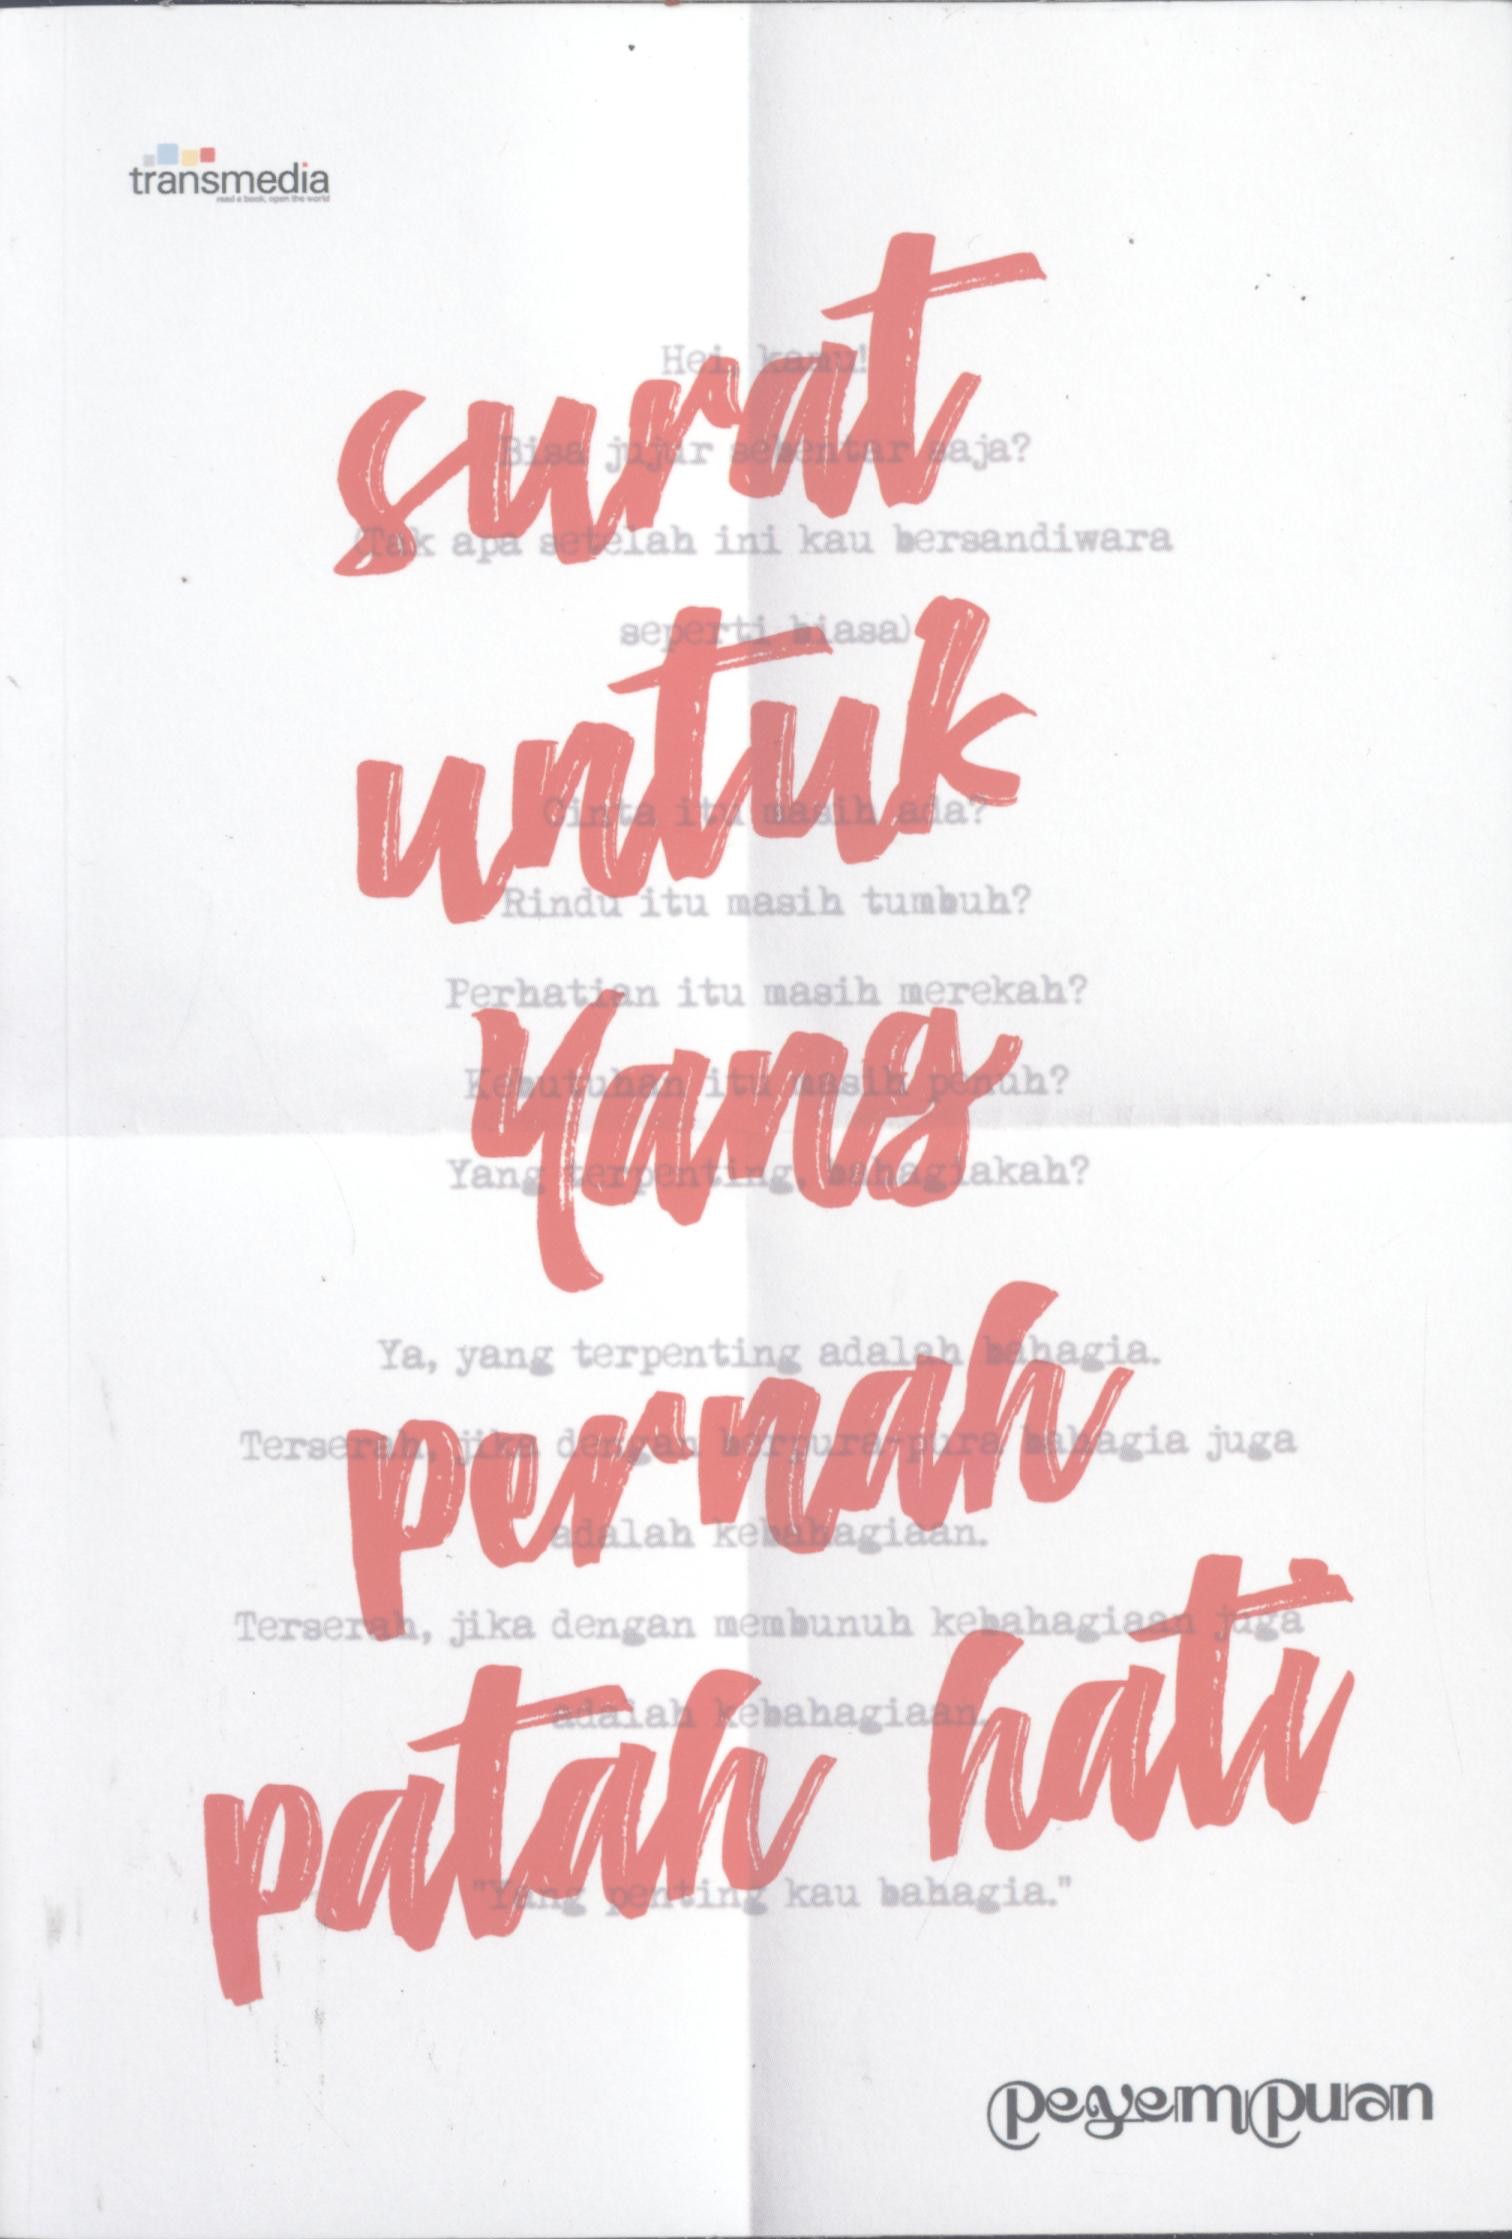 transmedia
read a book, open the world
surat
untuk
Yang
pernah
patah hati
Hei, kamu!
Bisa jujur sebentar saja?
(Tak apa setelah ini kau bersandiwara
seperti biasa)
Cinta itu masih ada?
Rindu itu masih tumbuh?
Perhatian itu masih merekah?
Kebutuhan itu masih penuh?
Yang terpenting, bahagiakah?
Ya, yang terpenting adalah bahagia.
Terserah, jika dengan berpura-pura bahagia juga
adalah kebahagiaan.
Terserah, jika dengan membunuh kebahagiaan juga
adalah kebahagiaan.
"Yang penting kau bahagia."
peyempuan